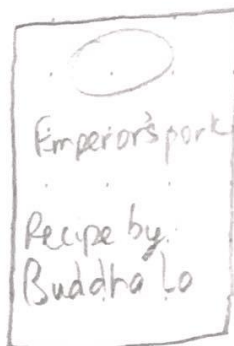 Emperor's pork
Recipe by
Buddha Lo